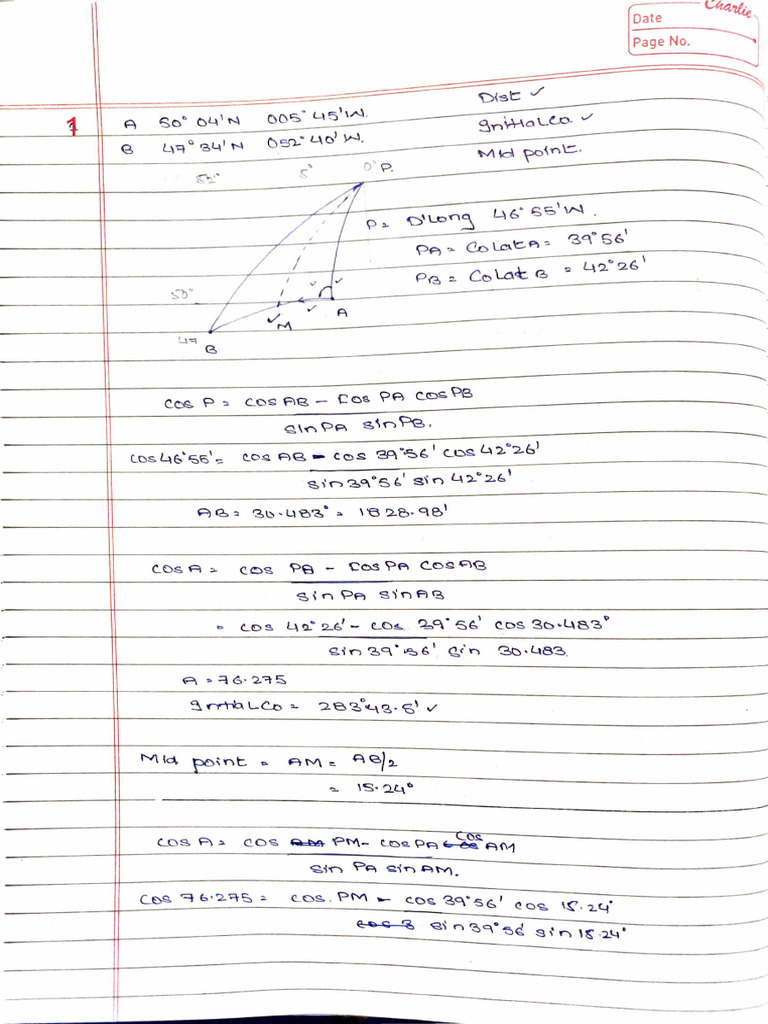 Charlie
Date
Page No.
1 A 50° 04'N 005° 45'W. Dist ✓
B 47° 34'N 052° 40'W. Initial Co. ✓
Mid point.
52° 5° 0° P.
P = D'Long 46° 55'W.
PA = CoLat A = 39°56'
PB = CoLat B = 42°26'
50°
A
M
47
B
cos P = cos AB - cos PA cos PB
sin PA sin PB.
cos 46°55' = cos AB - cos 39°56' cos 42°26'
sin 39°56' sin 42°26'
AB = 30.483° = 1828.98'
cos A = cos PA - cos PA cos AB
sin PA sin AB
= cos 42°26' - cos 39°56' cos 30.483°
sin 39°56' sin 30.483
A = 76.275
Initial Co = 283°43.5' ✓
Mid point = AM = AB/2
= 15.24°
cos A = cos AM PM - cos PA cos cos AM
sin PA sin AM.
cos 76.275 = cos. PM - cos 39°56' cos 15.24°
cos 3 sin 39°56' sin 15.24°